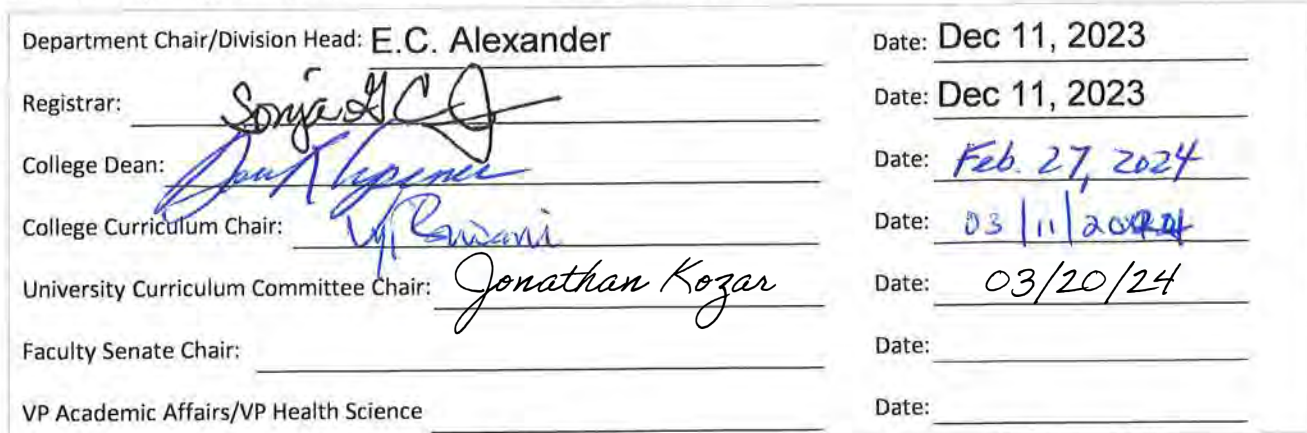 Department Chair/Division Head: E.C. Alexander Date: Dec 11, 2023
Registrar: Sonja G Date: Dec 11, 2023
College Dean: Date: Feb. 27, 2024
College Curriculum Chair: Date: 03/11/2024
University Curriculum Committee Chair: Jonathan Kozar Date: 03/20/24
Faculty Senate Chair: Date:
VP Academic Affairs/VP Health Science Date: